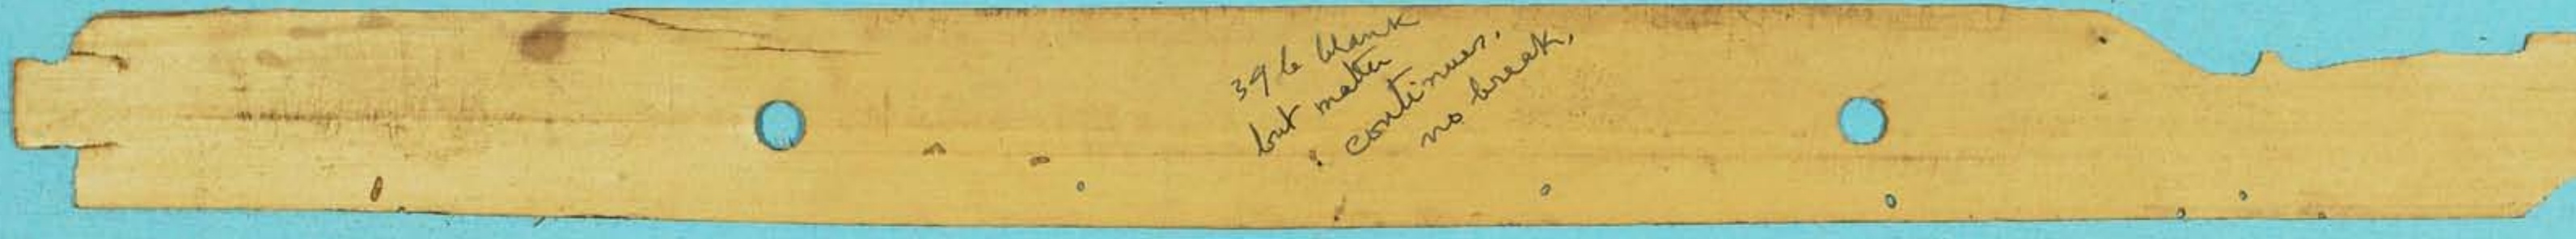 39 b blank
but matter
continues,
no break.